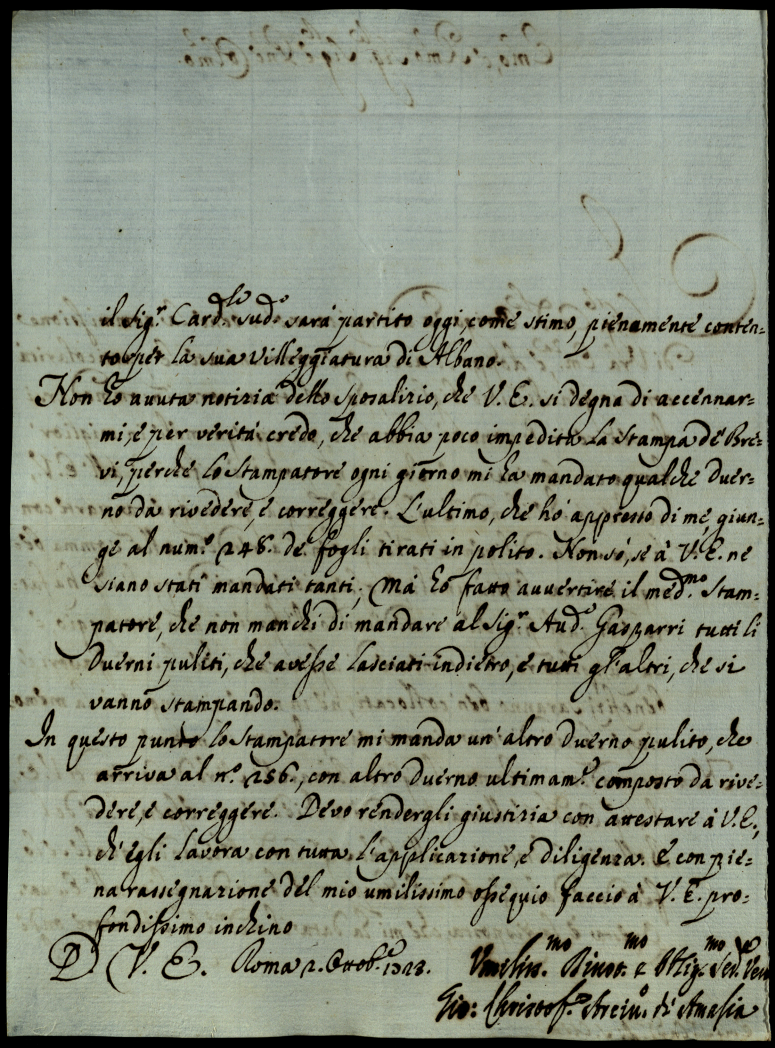 il Sig.r Card.le sud.o sarà partito oggi, come stimo, pienamente conten-
to per la sua villeggiatura di Albano.
Non hò avuta notizia dello sposalizio, che V. E. si degna di accennar-
mi, e per verità credo, che abbia poco impedita la stampa de' Bre-
vi, perche lo Stampatore ogni giorno mi ha mandato qualche duer-
no da rivedere, e correggere. L'ultimo, che hò appresso di me, giun-
ge al num.o 248. de fogli tirati in polito. Non sò, se à V. E. ne
siano stati mandati tanti; mà hò fatto avvertire il med.mo Stam-
patore, che non manchi di mandare al Sig.r Aud.e Gasparri tutti li
duerni puliti, che avesse lasciati indietro, e tutti gl'altri, che si
vanno stampando.
In questo punto lo Stampatore mi manda un'altro duerno pulito, che
arriva al n.o 256., con altro duerno ultimam.e composto da rive-
dere, e correggere. Devo rendergli giustizia con attestare à V. E.,
ch'egli lavora con tutta l'applicazione, e diligenza. E con pie-
na rassegnazione del mio umilissimo ossequio faccio à V. E. pro-
fondissimo inchino
D. V. E. Roma 2. Ottob.e 1728. Umilis.mo Divot.mo e Oblig.mo Ser.re Vero
Gio: Christof.o Arciv.o di Amasia